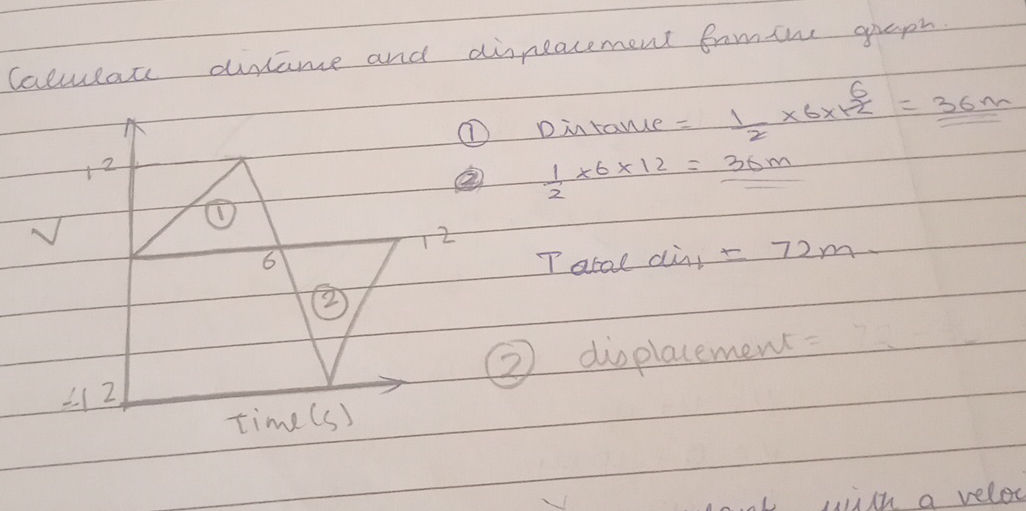 Calculate distance and displacement from the graph.
① Distance = 1/2 × 6 × 12 6 = 36m
② 1/2 × 6 × 12 = 36m
Total dis, = 72m
② displacement =
12
V
①
6
12
②
-12
Time(s)
with a veloc